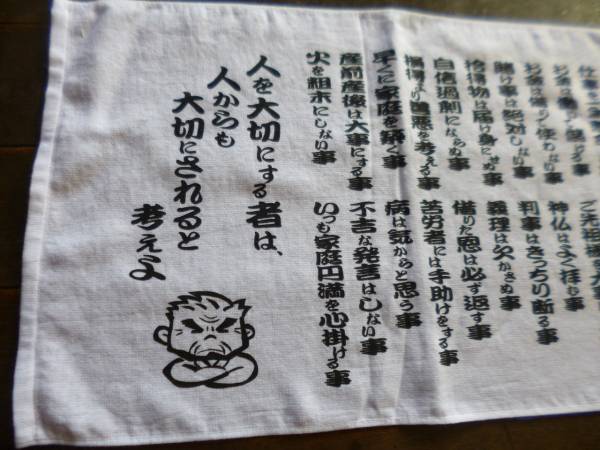 賭け事は絶対しない事
拾得物は届け身にせぬ事
自信過剰にならぬ事
損得より善悪を考える事
早くに家庭を築く事
産前産後は大事にする事
火を粗末にしない事
ご先祖様
神仏はよく拝む事
判事はきっちり断る事
義理は欠かさぬ事
借りた恩は必ず返す事
苦労者には手助けをする事
病は気からと思う事
不吉な発言はしない事
いつも家庭円満を心掛ける事
人を大切にする者は、
人からも
大切にされると
考えよ